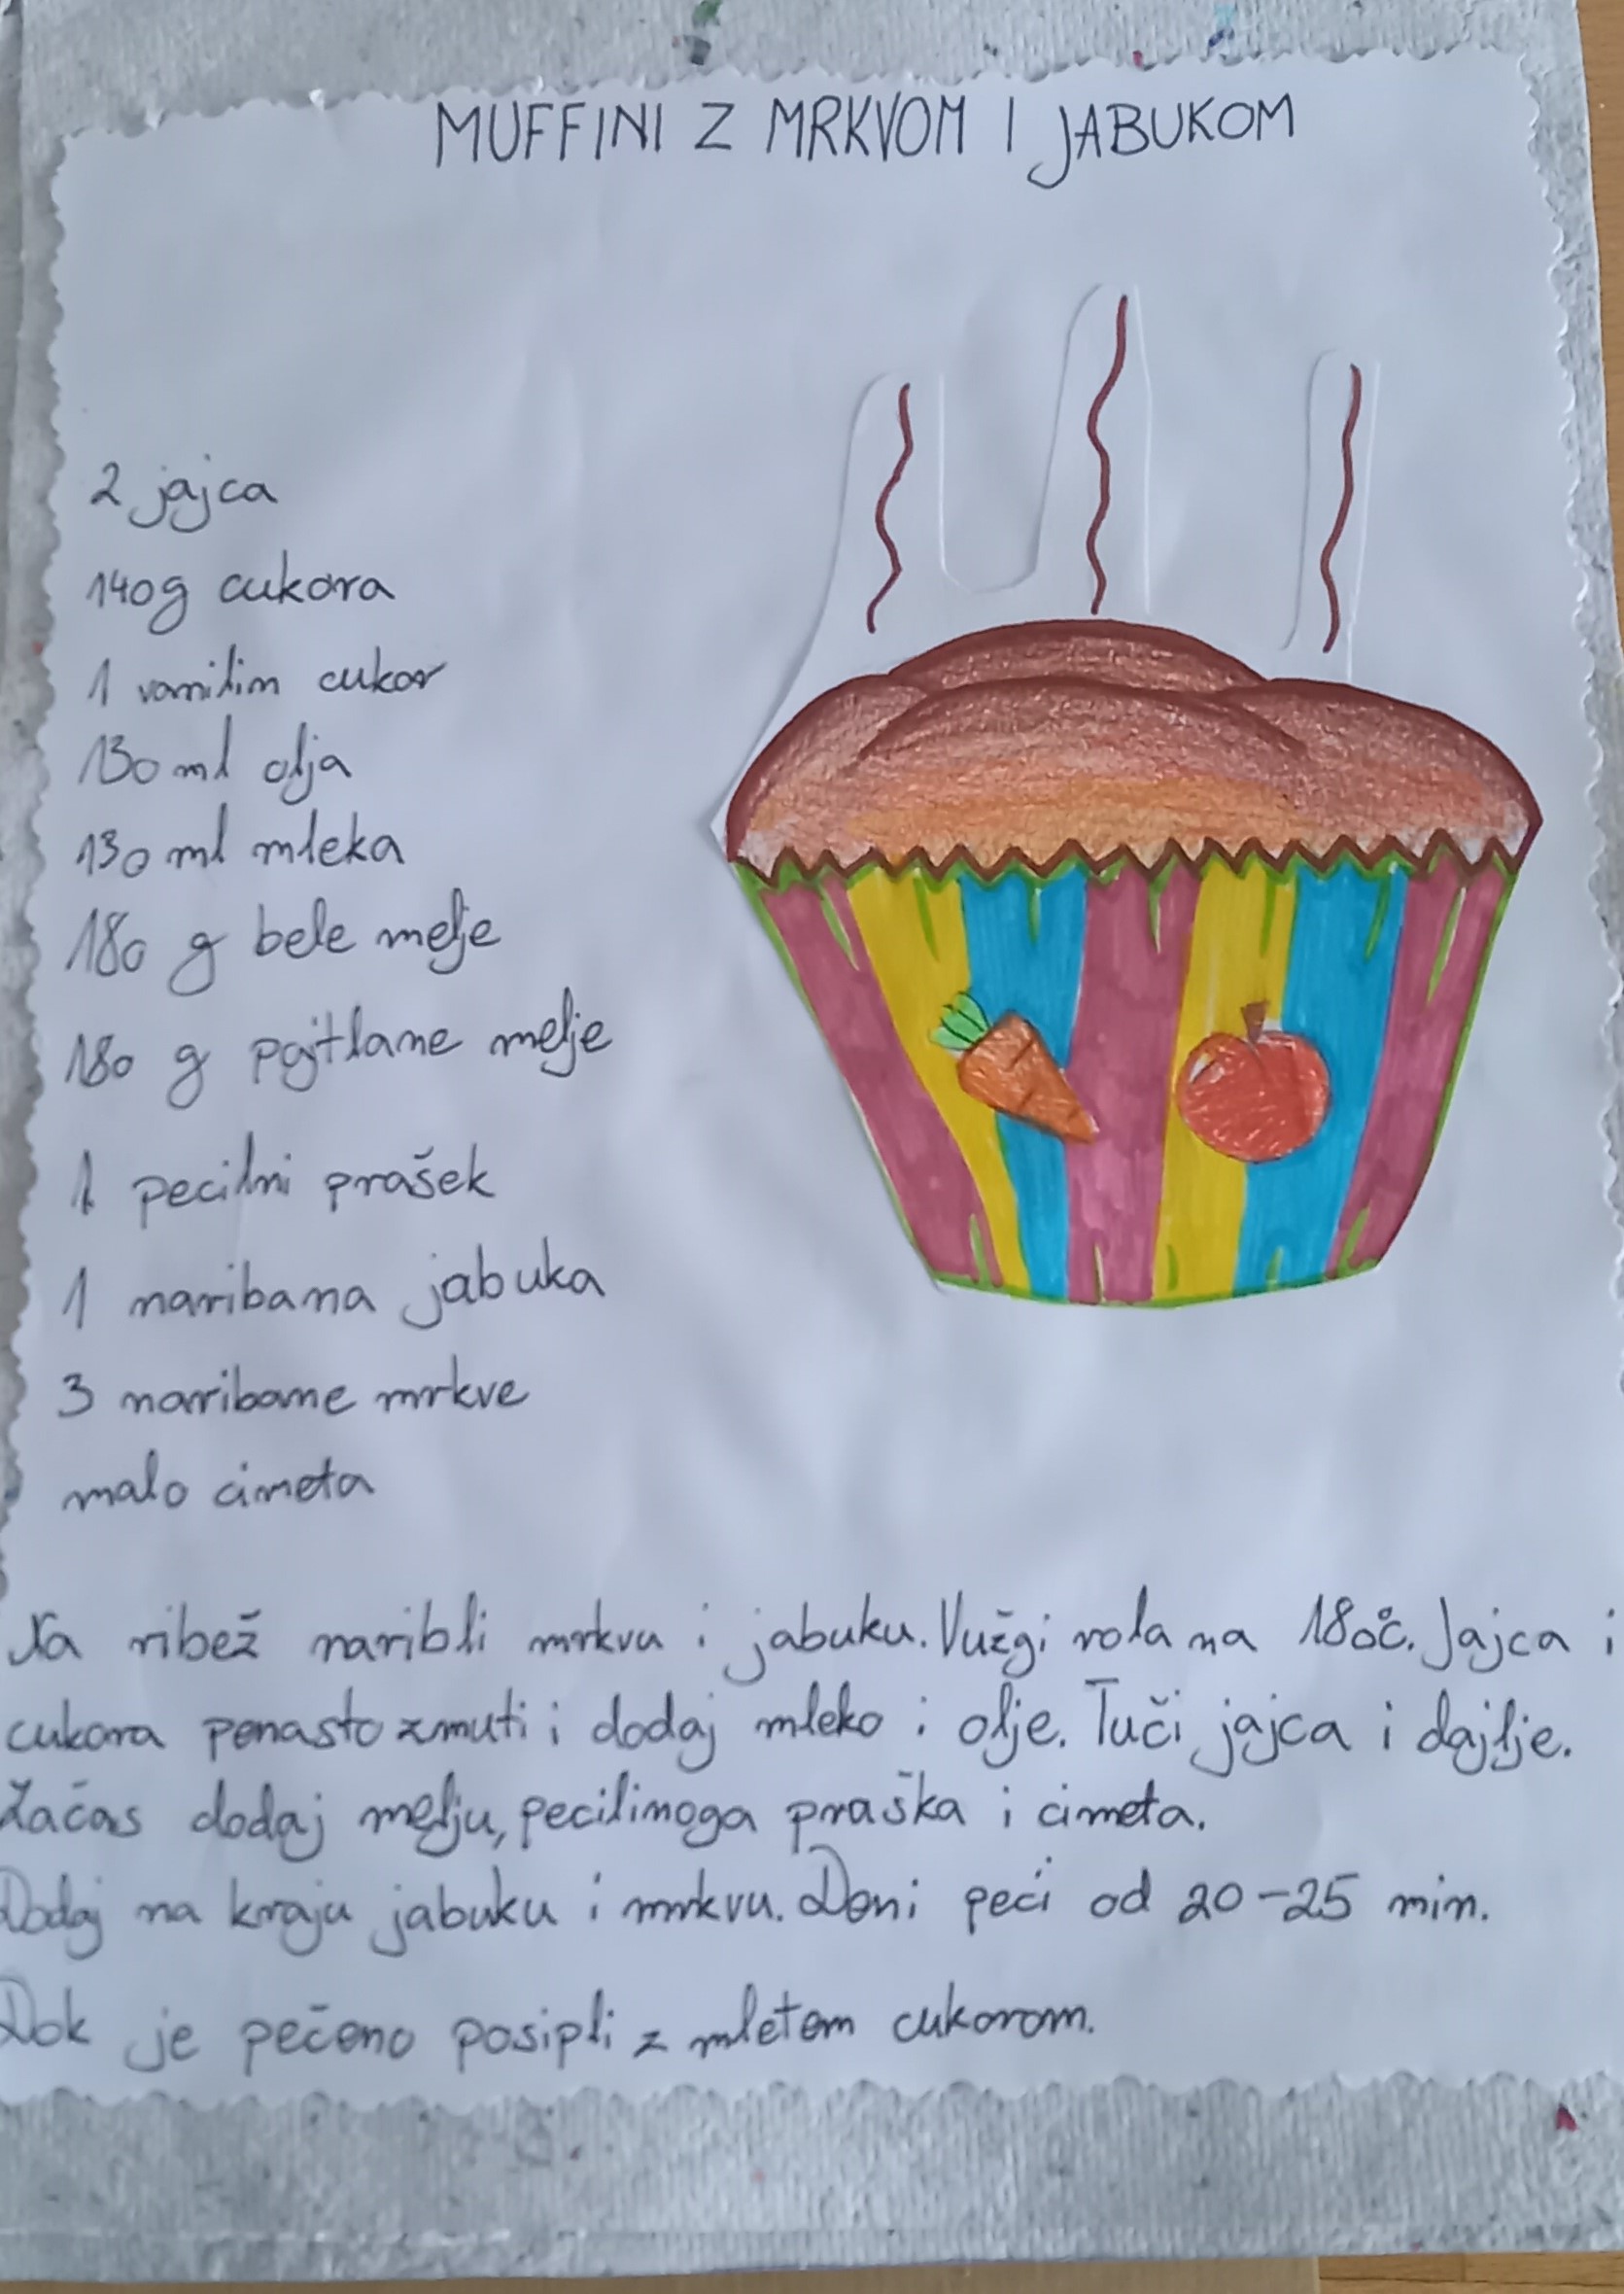 MUFFINI Z MRKVOM I JABUKOM
2 jajca
140g cukora
1 vanilin cukor
130 ml olja
130 ml mleka
180 g bele melje
180 g pajtlane melje
1 pecilni prašek
1 naribana jabuka
3 naribane mrkve
malo cimeta
Na ribež naribli mrkvu i jabuku. Vužgi rola na 180°C. Jajca i
cukora penasto zmuti i dodaj mleko i olje. Tuči jajca i dajlje.
Začas dodaj melju, pecilinoga praška i cimeta.
Dodaj na kraju jabuku i mrkvu. Deni peći od 20-25 min.
Dok je pečeno posipli z mletem cukorom.